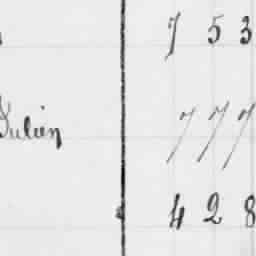 7 5 3
Julien 7 7 7
4 2 8